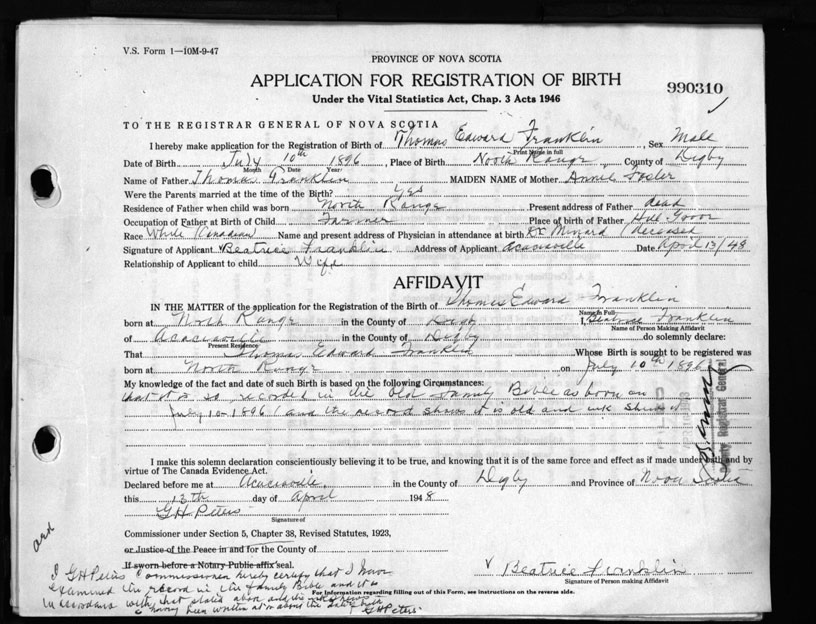 V.S. Form 1—10M-9-47
PROVINCE OF NOVA SCOTIA
APPLICATION FOR REGISTRATION OF BIRTH
990310
Under the Vital Statistics Act, Chap. 3 Acts 1946
TO THE REGISTRAR GENERAL OF NOVA SCOTIA
I hereby make application for the Registration of Birth of Thomas Edward Franklin, Sex Male
Print Name in full
Date of Birth July 10th 1896, Place of Birth North Range County of Digby
Month Date Year
Name of Father Thomas Franklin MAIDEN NAME of Mother Annie Foster
Were the Parents married at the time of the Birth? Yes
Residence of Father when child was born North Range Present address of Father dead
Occupation of Father at Birth of Child Farmer Place of birth of Father Hill Grove
Race White (Canadian) Name and present address of Physician in attendance at birth Minard (deceased
Signature of Applicant Beatrice Franklin Address of Applicant Acaciaville Date April 13/48
Relationship of Applicant to child Wife
AFFIDAVIT
IN THE MATTER of the application for the Registration of the Birth of Thomas Edward Franklin
Name in Full
born at North Range in the County of Digby I, Beatrice Franklin
Name of Person Making Affidavit
of Acaciaville in the County of Digby do solemnly declare:
Present Residence
That Thomas Edward Franklin Whose Birth is sought to be registered was
born at North Range on July 10th 1896
My knowledge of the fact and date of such Birth is based on the following Circumstances:
that it is so recorded in the Old Family Bible as born on
July 10-1896 and the record shows it is old and ink shows it
Deputy Registrar General
I make this solemn declaration conscientiously believing it to be true, and knowing that it is of the same force and effect as if made under oath and by
virtue of The Canada Evidence Act.
Declared before me at Acaciaville in the County of Digby and Province of Nova Scotia
this 13th day of April 1948
G H Peters
Signature of
Commissioner under Section 5, Chapter 38, Revised Statutes, 1923,
or Justice of the Peace in and for the County of
If sworn before a Notary Public affix seal.
Beatrice Franklin
Signature of Person making Affidavit
I G H Peters Commissioner hereby certify that I have
examined the record in the family Bible and it is
For Information regarding filling out of this Form, see instructions on the reverse side.
in accordance with that stated above and the
having been written at or about the date G H Peters